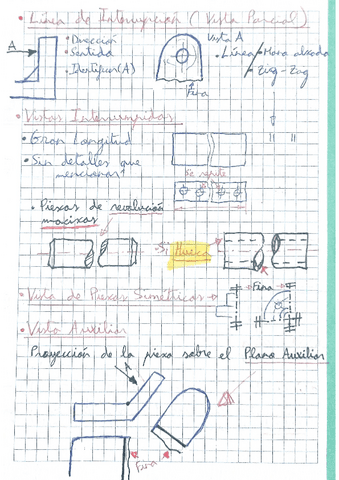 • Línea de Interrupción (Vista Parcial)
A
• Dirección
• Sentido
• Identificar (A)
Vista A
• Línea
Mano alzada
Zig-Zag
Fina
• Vistas Interrumpidas
• Gran Longitud
• Sin detalles que
mencionar
Se repite
• Piezas de revolución
macizas
Si Hueca
• Vista de Piezas Simétricas
Fina
• Vista Auxiliar
Proyección de la pieza sobre el Plano Auxiliar
A
Fina